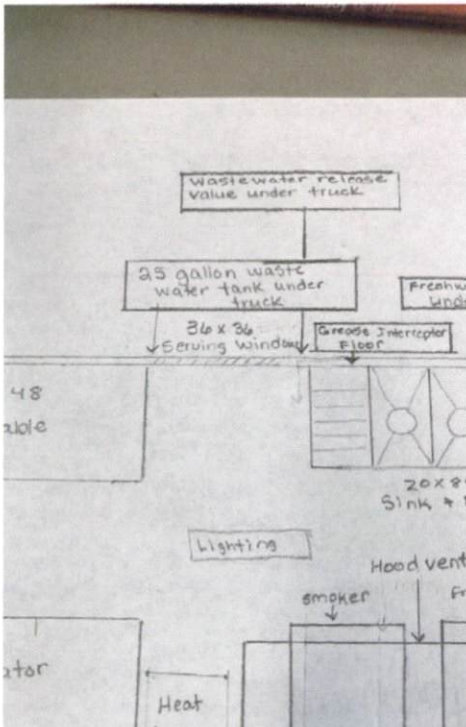 wastewater release
value under truck
25 gallon waste
water tank under
truck
Freshw
Unde
36 x 36
Serving window
Grease Interceptor
Floor
48
able
20 x 8
Sink +
Lighting
Hood vent
smoker
Fr
ator
Heat